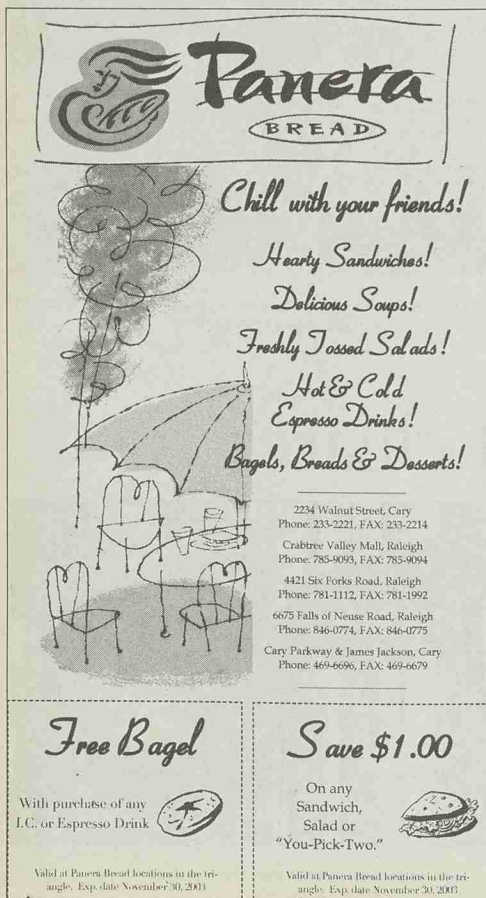 Panera
BREAD
Chill with your friends!
Hearty Sandwiches!
Delicious Soups!
Freshly Tossed Salads!
Hot & Cold
Espresso Drinks!
Bagels, Breads & Desserts!
2234 Walnut Street, Cary
Phone: 233-2221, FAX: 233-2214
Crabtree Valley Mall, Raleigh
Phone: 785-9093, FAX: 785-9094
4421 Six Forks Road, Raleigh
Phone: 781-1112, FAX: 781-1992
6675 Falls of Neuse Road, Raleigh
Phone: 846-0774, FAX: 846-0775
Cary Parkway & James Jackson, Cary
Phone: 469-6696, FAX: 469-6679
Free Bagel
With purchase of any
I.C. or Espresso Drink
Valid at Panera Bread locations in the tri-
angle. Exp. date November 30, 2003
Save $1.00
On any
Sandwich,
Salad or
"You-Pick-Two."
Valid at Panera Bread locations in the tri-
angle. Exp. date November 30, 2003